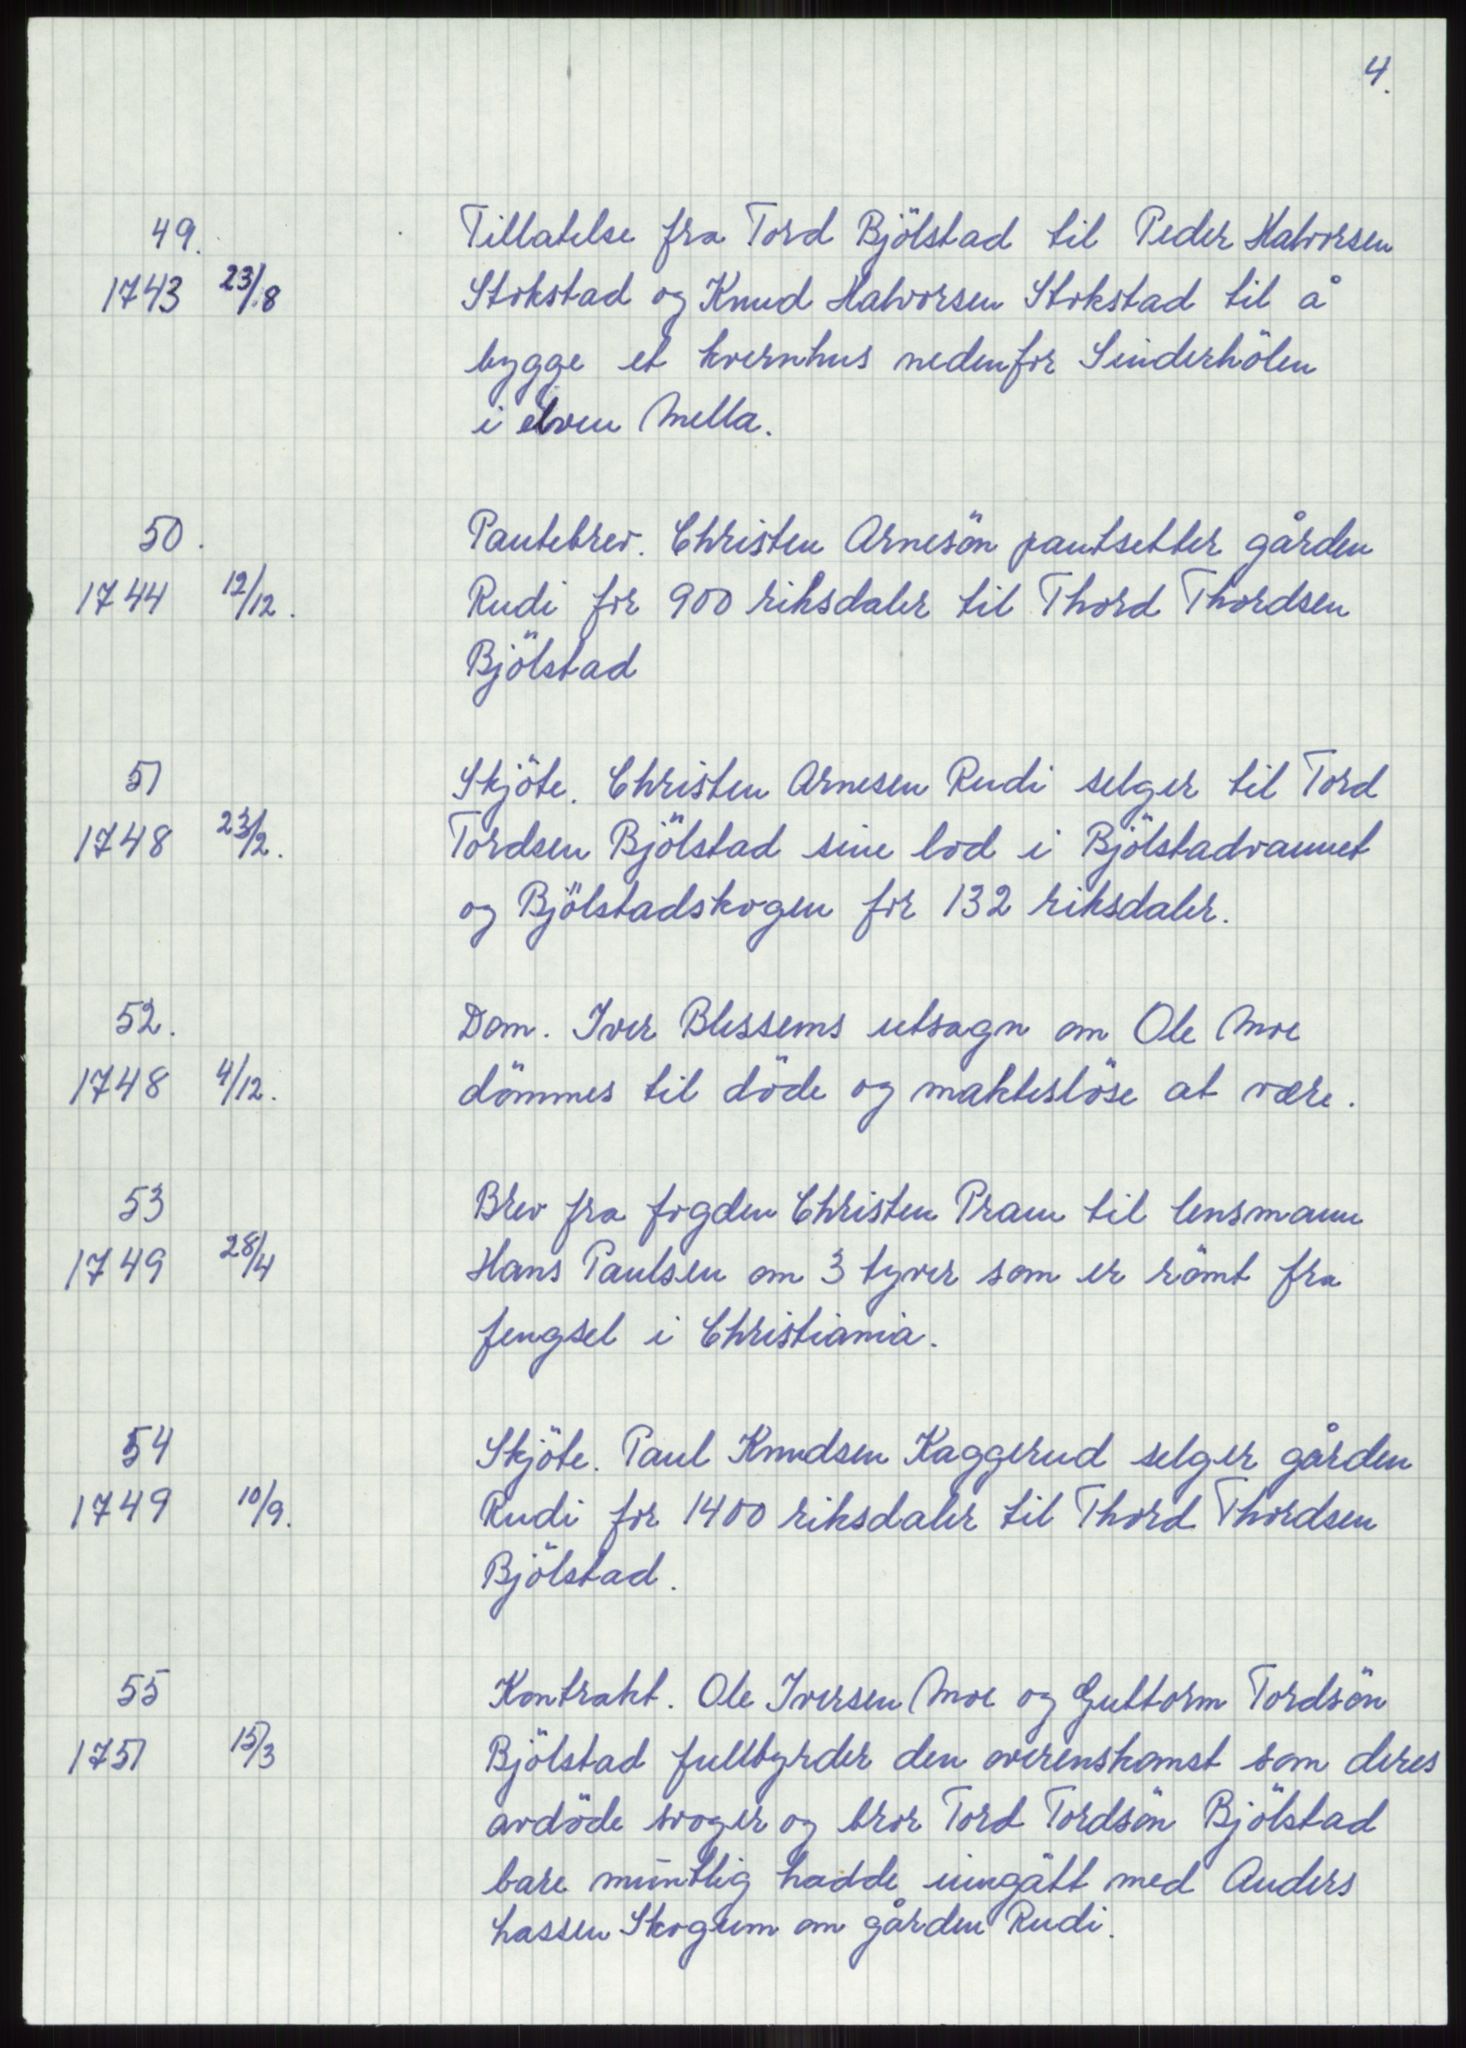 4.
49. Tillatelse fra Tord Bjölstad til Peder Halvorsen
1743 23/8 Stokstad og Knud Halvorsen Stokstad til å
bygge et kvernhus nedenfor Sinderhölen
i elven Mella.
50. Pantebrev. Christen Arnesön pantsetter gården
1744 12/12. Rudi for 900 riksdaler til Thord Thordsen
Bjölstad
51 Skjöte. Christen Arnesen Rudi selger til Tord
1748 23/2. Tordsen Bjölstad sine lod i Bjölstadvannet
og Bjölstadskogen for 132 riksdaler.
52. Dom. Iver Blessems utsagn om Ole Moe
1748 4/12. dömmes til döde og makteslöse at være.
53 Brev fra fogden Christen Pram til lensmann
1749 28/4 Hans Paulsen om 3 tyver som er römt fra
fengsel i Christiania.
54 Skjöte. Paul Knudsen Kaggerud selger gården
1749 10/9. Rudi for 1400 riksdaler til Thord Thordsen
Bjölstad.
55 Kontrakt. Ole Iversen Moe og Guttorm Tordsön
1751 15/3 Bjölstad fullbyrder den overenskomst som deres
avdöde svoger og bror Tord Tordsön Bjölstad
bare muntlig hadde inngått med Anders
hassen Skogum om gården Rudi.